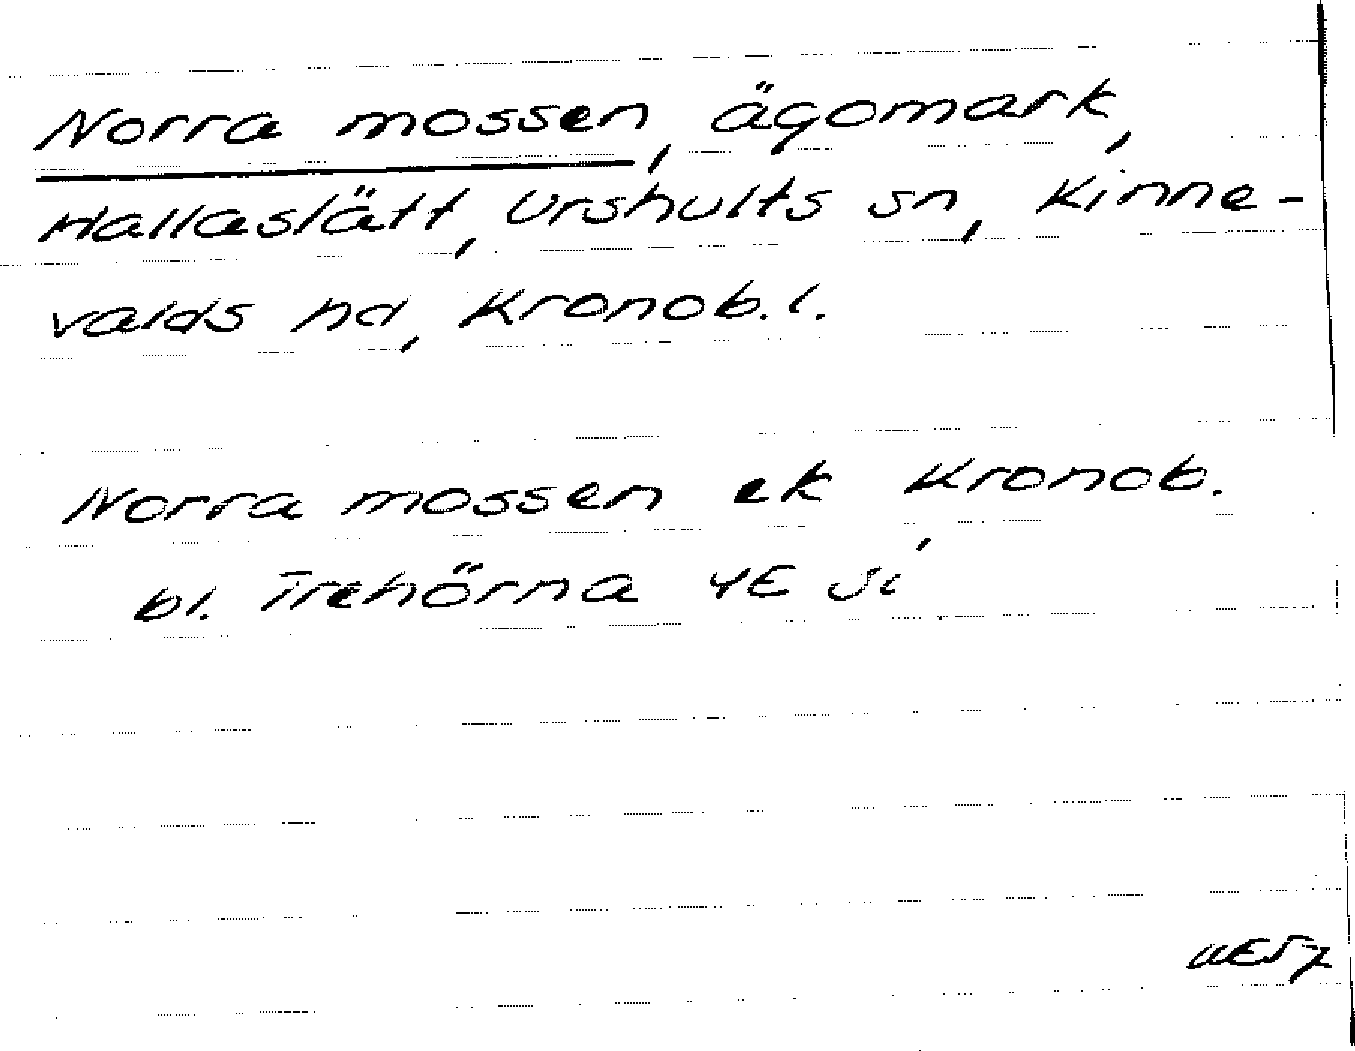 Norra mossen, ägomark,
Hallaslätt, Urshults sn, Kinne-
valds hd, Kronob. l.
Norra mossen ek Kronob.
bl. Trehörna 4E